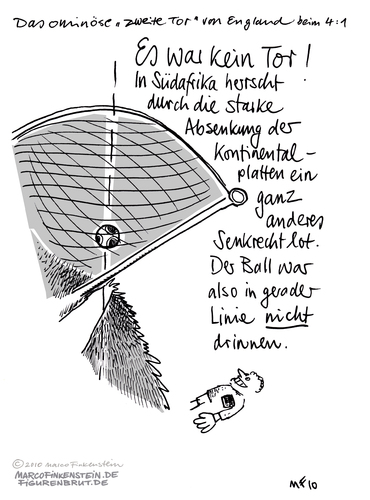 Das ominöse „zweite Tor“ von England beim 4:1
Es war kein Tor!
In Südafrika herrscht
durch die starke
Absenkung der
Kontinental-
platten ein
ganz
anderes
Senkrechtlot.
Der Ball war
also in gerader
Linie nicht
drinnen.
©2010 Marco Finkenstein
MARCOFINKENSTEIN.DE
FIGURENBRUT.DE
MF10